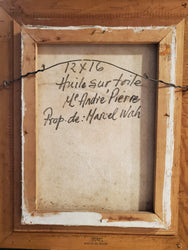 12 X 16
Huile sur toile
Mc André Pierre
Prop. de: Marcel Wah